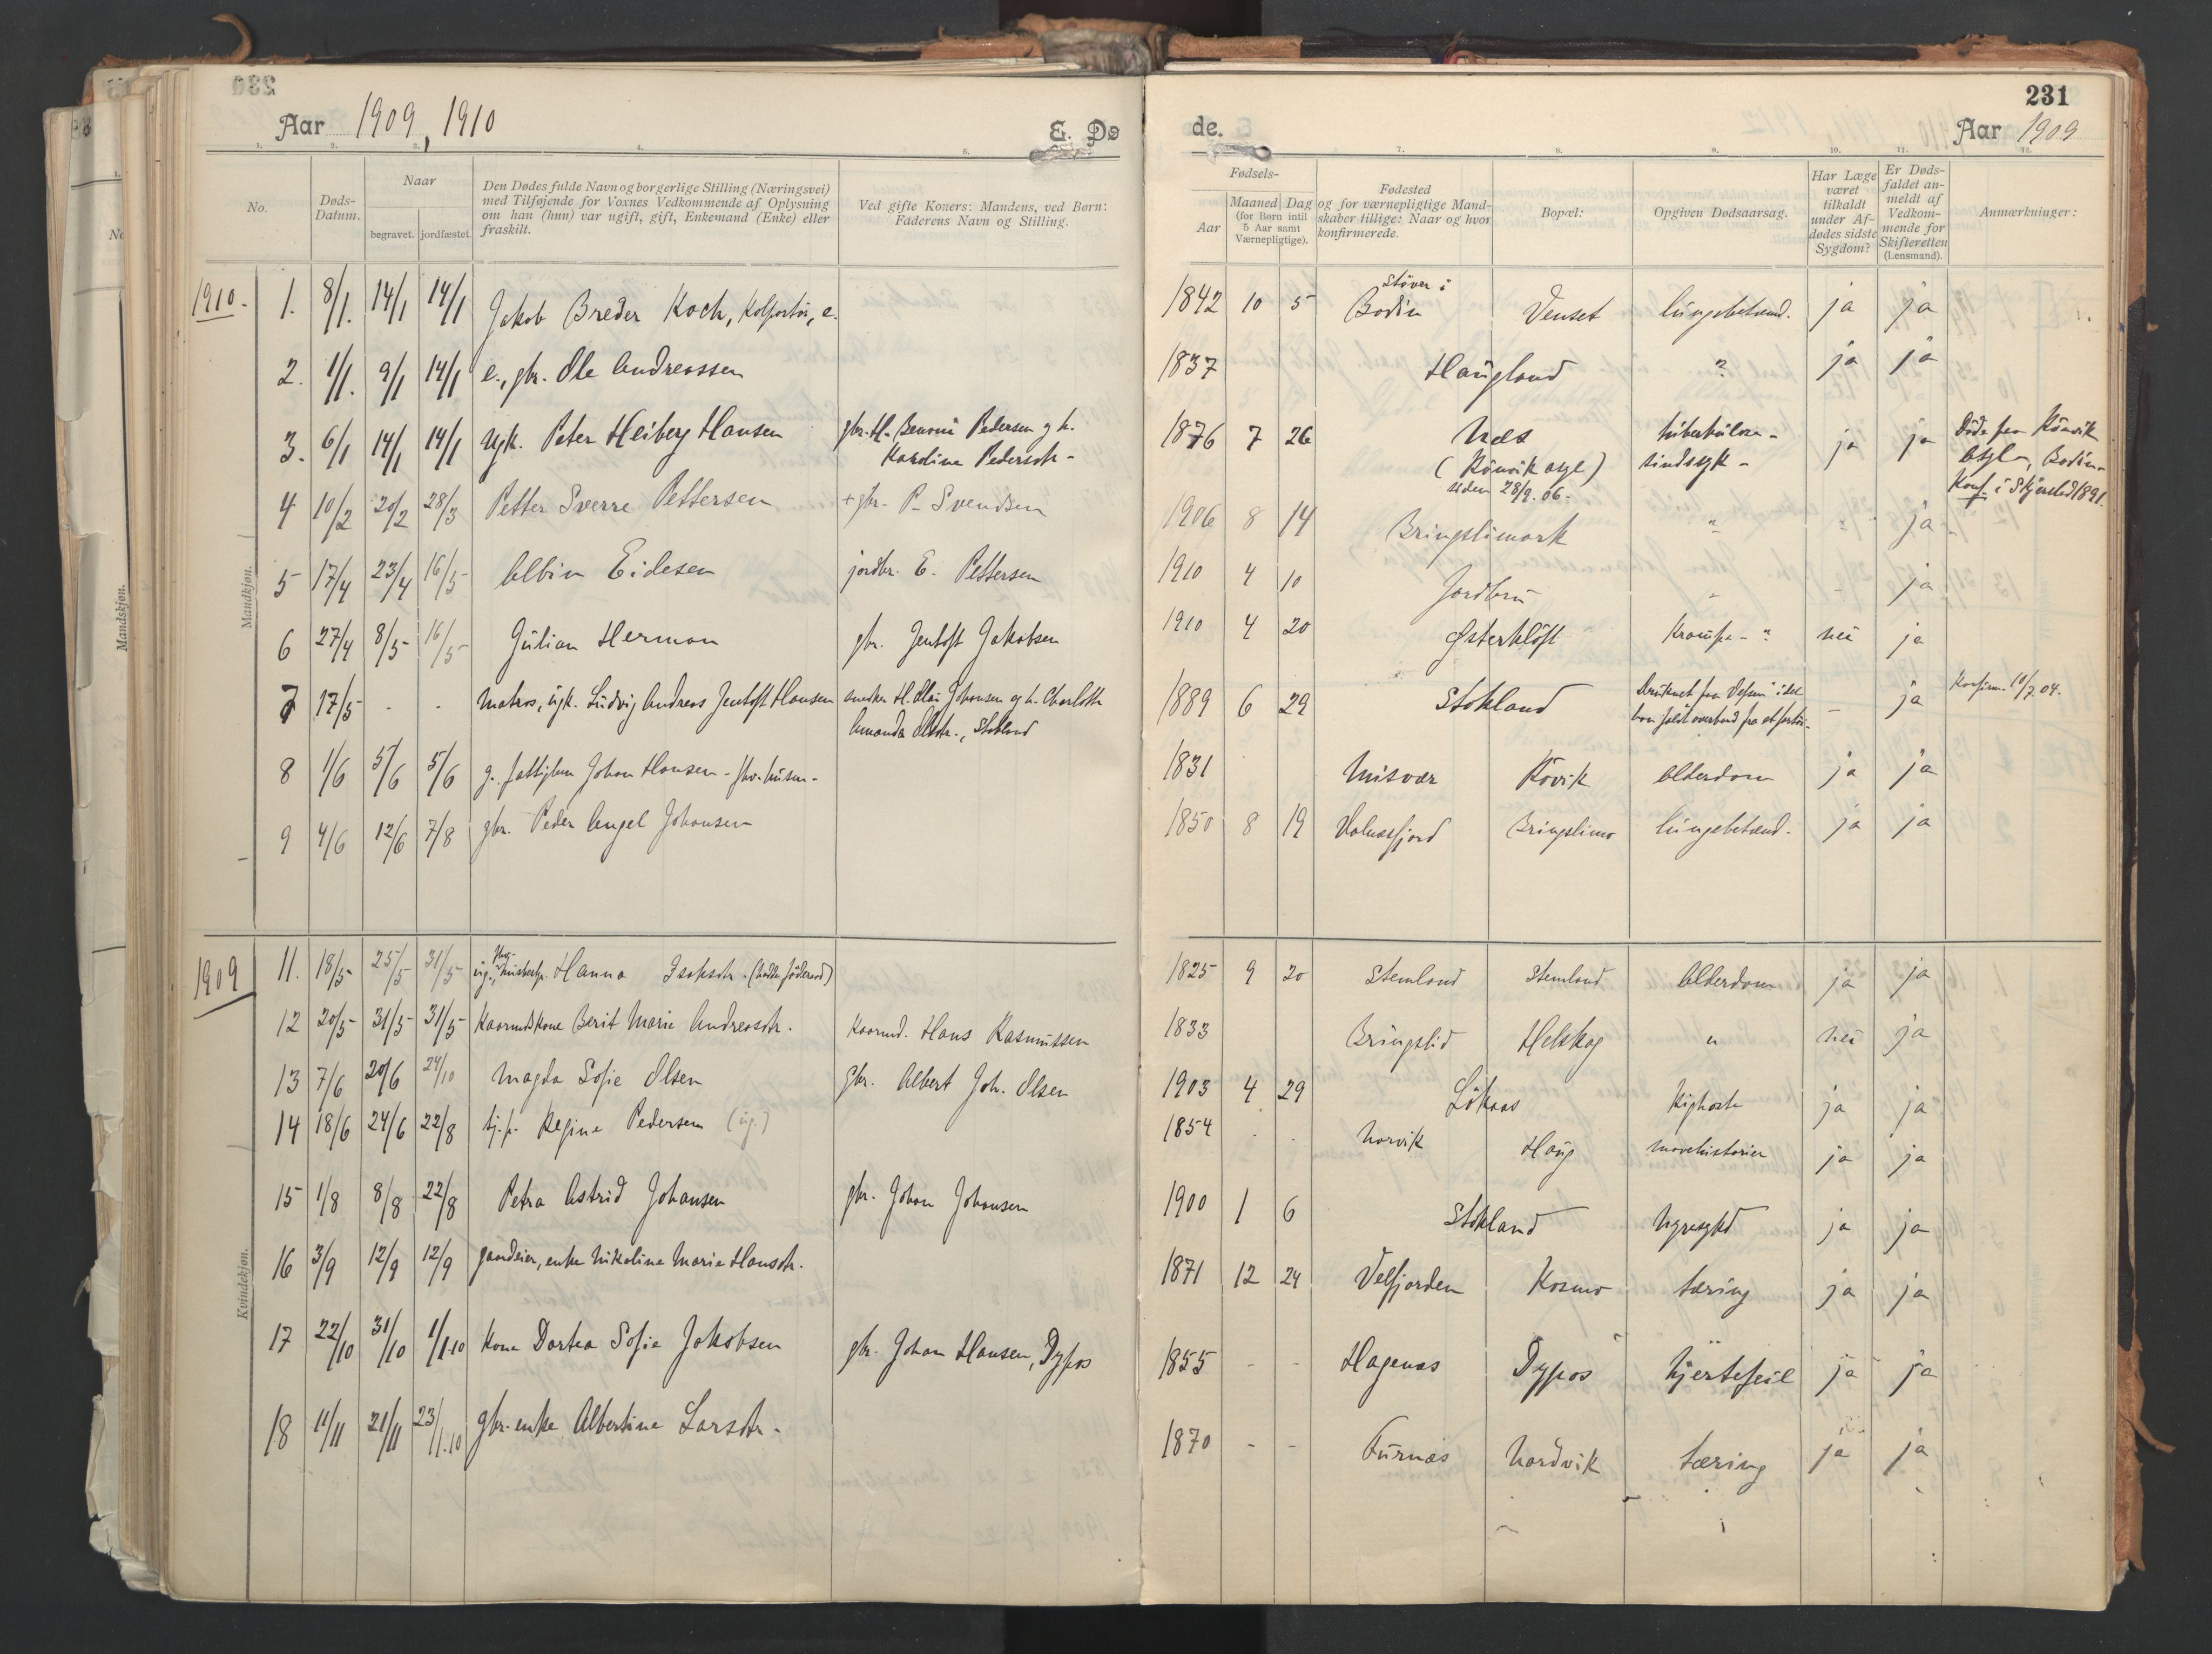 230
Aar 1909, 1910
E. Dø
de.
231
Aar 1909
1. 2. 3. 4. 5. 7. 8. 9. 10. 11. 12.
No.
Døds-
Datum.
Naar
begravet. jordfæstet.
Den Dødes fulde Navn og borgerlige Stilling (Næringsvei)
med Tilføjende for Voxnes Vedkommende af Oplysning
om han (hun) var ugift, gift, Enkemand (Enke) eller
fraskilt.
Ved gifte Koner: Mandens, ved Børn:
Faderens Navn og Stilling.
Fødsels-
Aar
Maaned Dag
(for Børn intil
5 Aar samt
Værnepligtige).
Fødested
og for værnepligtige Mand-
skaber tillige: Naar og hvor
konfirmerede.
Bopæl:
Opgiven Dødsaarsag.
Har Læge
været
tilkaldt
under Af-
dødes sidste
Sygdom?
Er Døds-
faldet an-
meldt af
Vedkom-
mende for
Skifteretten
(Lensmand).
Anmærkninger:
Mandkjøn.
1910.
1. 8/1. 14/1 14/1 Jakob Breder Koch, Kolportør, e. 1842 10 5 Støver i
Bodin Venset lungebetænd. ja ja
2. 1/1. 9/1 14/1 e., gbr. Ole Andreassen 1837 Haugland ? ja ja
3. 6/1 14/1 14/1 Ugk. Peter Heiberg Hansen gbr. H. Benoni Pedersen og h.
Karoline Pedersdtr. 1876 7 26 Næs
(Rönvik asyl)
siden 28/9. 06. tuberkulose -
sindssyk - ja ja Döde paa Rönvik
Asyl, Bodin.
Konf. i Skjerstad 1891.
4 10/2 20/2 28/3 Petter Sverre Pettersen + gbr. P. Svendsen 1906 8 14 Bringslimark " " ja
5 17/4 23/4 16/5 Albin Eidesen jordbr. E. Pettersen 1910 4 10 Jordbru " - ja
6 27/4 8/5 16/5 Julian Herman gbr. Jentoft Jakobsen 1910 4 20 Østerkløft Krampe - ? nei ja
7 17/5 - - Matros, ugk. Ludvig Andreas Jentoft Hansen smeden H. Olai Johansen og h. Charlotte
Amanda Olsdtr., Stokland 1889 6 29 Stokland Druknet paa Vefsen i det
han faldt overbord fra et fartøi. - ja Konfirm. 10/7. 04.
8 1/6 5/6 5/6 g. fattiglem Johan Hansen - fhv. husm. - 1831 Misvær Kövik Alderdom ja ja
9 4/6 12/6 7/8 gbr. Peder Angel Johansen 1850 8 19 Valnesfjord Bringslimo lungebetænd. ja ja
Kvindekjøn.
1909
11. 18/5 25/5 31/5 ug., Hanna Isaksdtr. (hadde föderaad) 1825 9 20 Stemland Stemland Alderdom ja ja
12 20/5 31/5 31/5 Kaarmdskone Berit Marie Andreasdtr. Kaarmd. Hans Rasmussen 1833 Bringslid Helskog " nei ja
13 7/6 20/6 24/10 Magda Sofie Olsen Gbr. Albert Joh. Olsen 1903 4 29 Løkaas Kighoste ja ja
14 18/6 24/6 22/8 tj.p. Regine Pedersen (ug.) 1854 - - Norvik Haug mavehistorier ja ja
15 1/8 8/8 22/8 Petra Astrid Johansen gbr. Johan Johansen 1900 1 6 Stokland Nyresykd ja ja
16 3/9 12/9 12/9 gaardeier, enke Nikoline Marie Hansdtr. 1871 12 24 Velfjorden Kosmo tæring ja ja
17 22/10 31/10 1/1.10 Kone Dortea Sofie Jakobsen gbr. Johan Hansen, Dypos 1855 - - Hagenes Dypos hjertefeil ja ja
18 11/11 21/11 23/1.10 Gbr.enke Albertine Larsdtr. 1870 - - Furnæs Nordvik tæring ja ja
Mandskjøn.